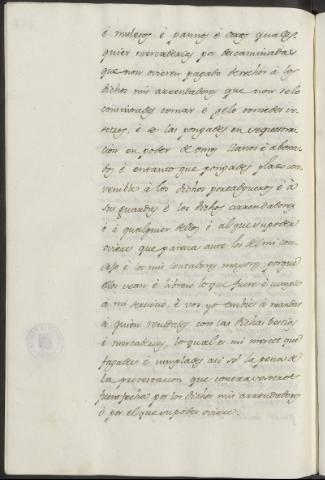 é muleros é pannos é otras quales-
quier mercaderias por descaminadas
que non ovieren pagado derechos á los
dichos mis arrendadores que non gelo
consintades tomar é gelo
é se las pongades en sequestra-
cion en poder de omes llanos é abona-
dos é entanto que pongades plazo con-
venible á los dichos portadgueros é á
sus guardas é los dichos arrendadores
ó á qualquier dellos é al que su poder
oviere que parezca ante los del mi con-
sejo é los mis contadores mayores porque
ellos vean é libren lo que fuere é cumple
á mi servicio, é vos yo embie á mandar
á quien recudades con las dichas bestias
é mercaderias, lo qual es mi merced que
fagades é cumplades asi só la pena de
la protestacion que contra vos
fuere fecha por los dichos mis arrendadores
é por el que su poder oviere.